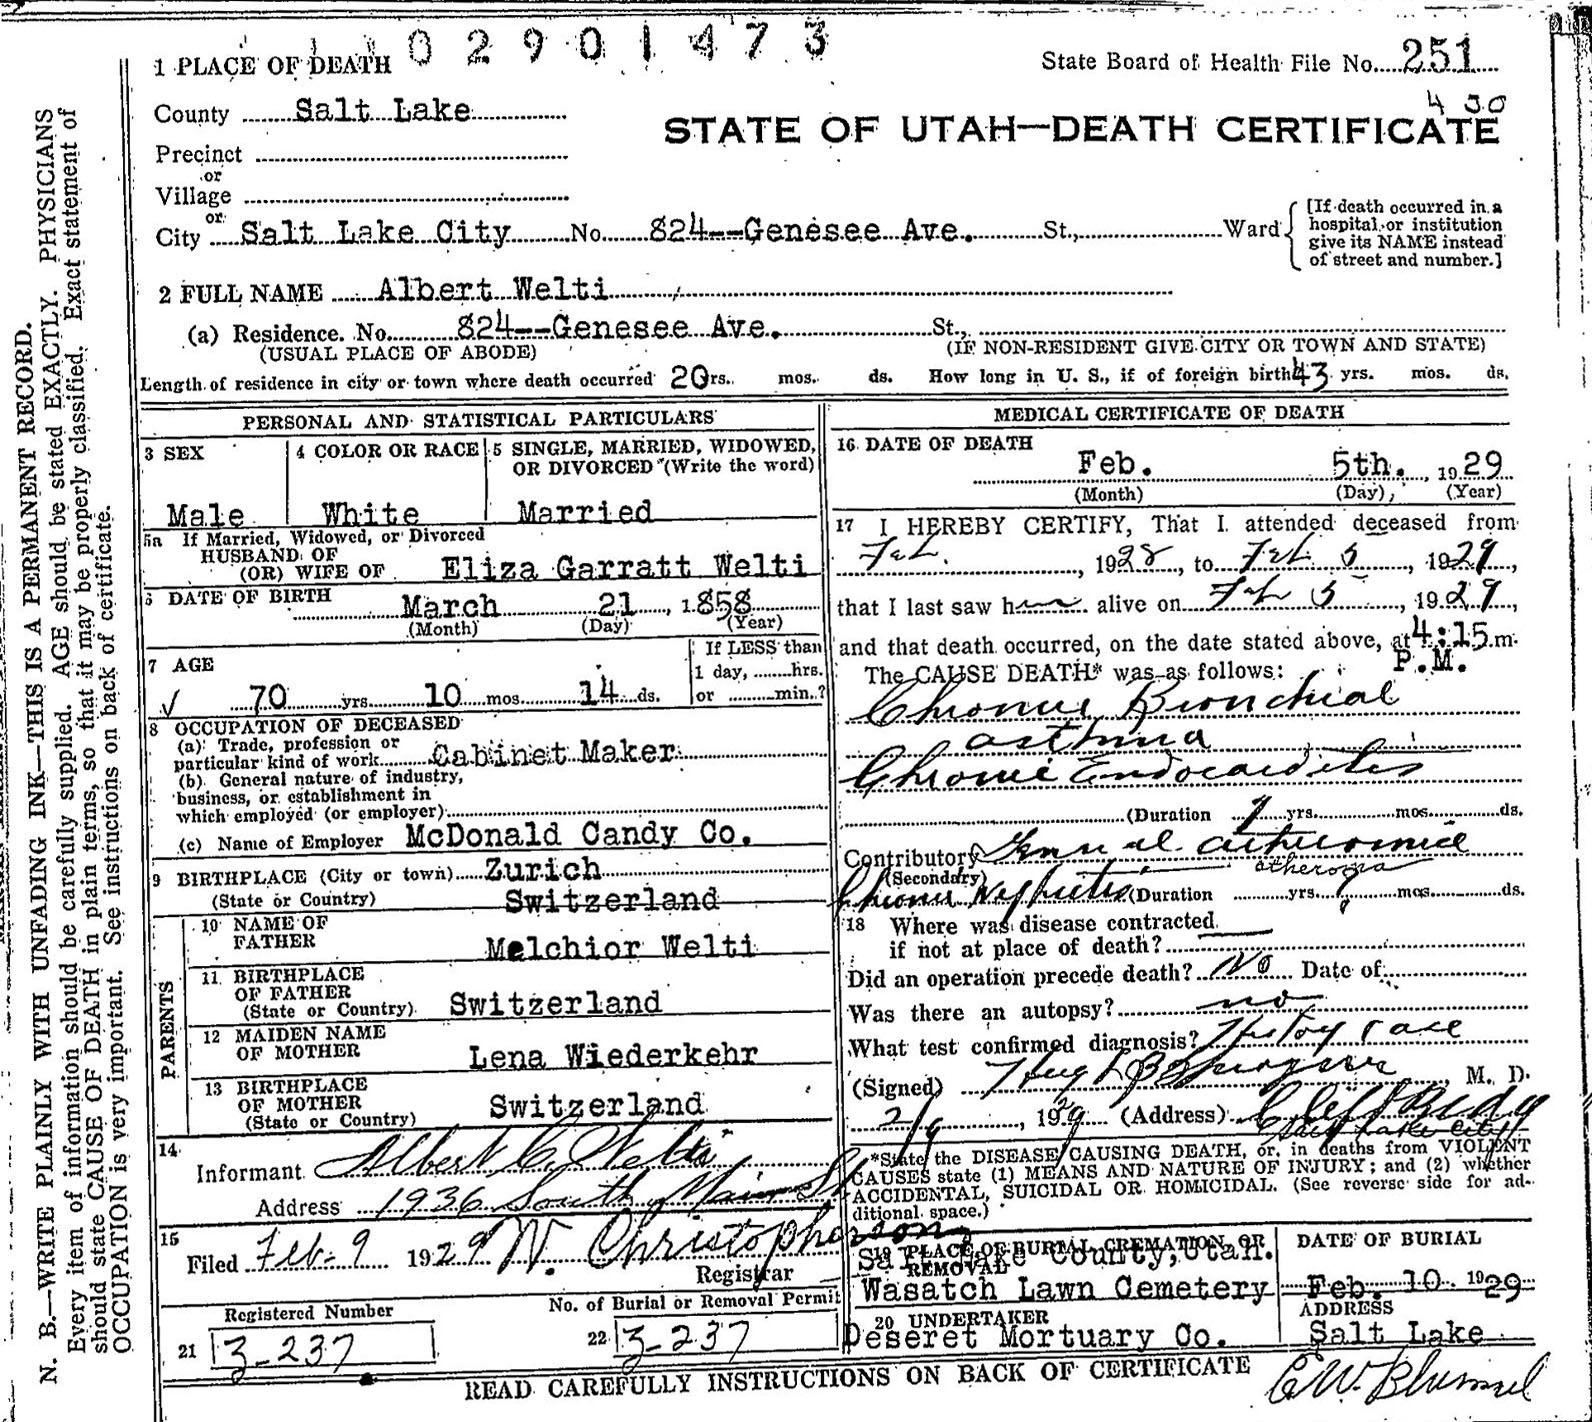 02901473
1 PLACE OF DEATH
State Board of Health File No. 251
County Salt Lake
4 30
STATE OF UTAH—DEATH CERTIFICATE
Precinct
or
Village
or
City Salt Lake City No. 824--Genesee Ave. St., Ward
[If death occurred in a
hospital or institution
give its NAME instead
of street and number.]
2 FULL NAME Albert Welti
(a) Residence. No. 824--Genesee Ave. St.,
(USUAL PLACE OF ABODE) (IF NON-RESIDENT GIVE CITY OR TOWN AND STATE)
Length of residence in city or town where death occurred 20 rs. mos. ds. How long in U. S., if of foreign birth 43 yrs. mos. ds.
PERSONAL AND STATISTICAL PARTICULARS
3 SEX
Male
4 COLOR OR RACE
White
5 SINGLE, MARRIED, WIDOWED,
OR DIVORCED (Write the word)
Married
5a If Married, Widowed, or Divorced
HUSBAND OF
(OR) WIFE OF Eliza Garratt Welti
6 DATE OF BIRTH
March 21, 1858
(Month) (Day) (Year)
7 AGE
70 yrs. 10 mos. 14 ds.
If LESS than
1 day, hrs.
or min.?
8 OCCUPATION OF DECEASED
(a) Trade, profession or
particular kind of work Cabinet Maker
(b) General nature of industry,
business, or establishment in
which employed (or employer)
(c) Name of Employer McDonald Candy Co.
9 BIRTHPLACE (City or town) Zurich
(State or Country) Switzerland
PARENTS
10 NAME OF
FATHER Melchior Welti
11 BIRTHPLACE
OF FATHER
(State or Country) Switzerland
12 MAIDEN NAME
OF MOTHER Lena Wiederkehr
13 BIRTHPLACE
OF MOTHER
(State or Country) Switzerland
14
Informant Albert C. Welti
Address 1936 South Main St
15
Filed Feb. 9 1929 W. Christopherson
Registrar
Registered Number
21 3-237
No. of Burial or Removal Permit
22 3-237
MEDICAL CERTIFICATE OF DEATH
16 DATE OF DEATH
Feb. 5th., 1929
(Month) (Day), (Year)
17 I HEREBY CERTIFY, That I attended deceased from
Feb., 1928, to Feb 5, 1929,
that I last saw him alive on Feb 5, 1929,
and that death occurred, on the date stated above, at 4:15 m.
P.M.
The CAUSE DEATH* was as follows:
Chronic Bronchial
asthma
Chronic Endocarditis
(Duration yrs. mos. ds.
Contributory General
(Secondary)
atheroma
Chronic Nephritis (Duration yrs. mos. ds.
18 Where was disease contracted
if not at place of death?
Did an operation precede death? No Date of
Was there an autopsy? no
What test confirmed diagnosis? History case
(Signed) M. D.
2/9, 1929 (Address) Clift Bldg
Salt Lake City
*State the DISEASE CAUSING DEATH, or, in deaths from VIOLENT
CAUSES state (1) MEANS AND NATURE OF INJURY; and (2) whether
ACCIDENTAL, SUICIDAL OR HOMICIDAL. (See reverse side for ad-
ditional space.)
19 PLACE OF BURIAL, CREMATION, OR
REMOVAL
Salt Lake County, Utah.
Wasatch Lawn Cemetery
DATE OF BURIAL
Feb. 10. 1929
20 UNDERTAKER
Deseret Mortuary Co.
ADDRESS
Salt Lake
READ CAREFULLY INSTRUCTIONS ON BACK OF CERTIFICATE
N. B.—WRITE PLAINLY WITH UNFADING INK—THIS IS A PERMANENT RECORD.
Every item of information should be carefully supplied. AGE should be stated EXACTLY. PHYSICIANS
should state CAUSE OF DEATH in plain terms, so that it may be properly classified. Exact statement of
OCCUPATION is very important. See instructions on back of certificate.